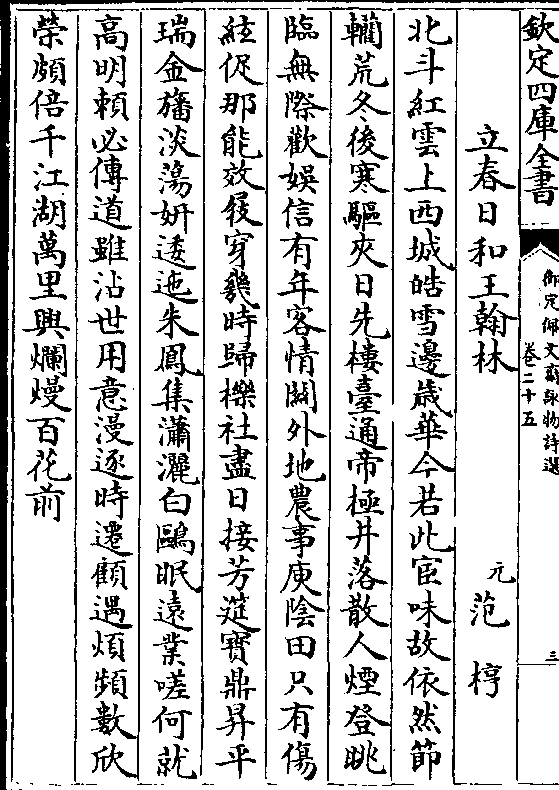 欽定四庫全書
御定佩文齋詠物詩選
卷二十五
三
立春日和王翰林
元 范梈
北斗紅雲上西城皓雪邊歲華今若此宦味故依然節
轥荒冬後寒驅夾日先樓臺通帝極井落散人煙登眺
臨無際歡娛信有年客情關外地農事庾陰田只有傷
絃促那能效屐穿幾時歸櫟社盡日接芳筵寶鼎昇平
瑞金旛淡蕩妍逶迤朱鳳集瀟灑白鷗眠遠業嗟何就
高明頼必傳道雖沾世用意漫逐時遷顧遇煩頻數欣
榮頗倍千江湖萬里興爛熳百花前